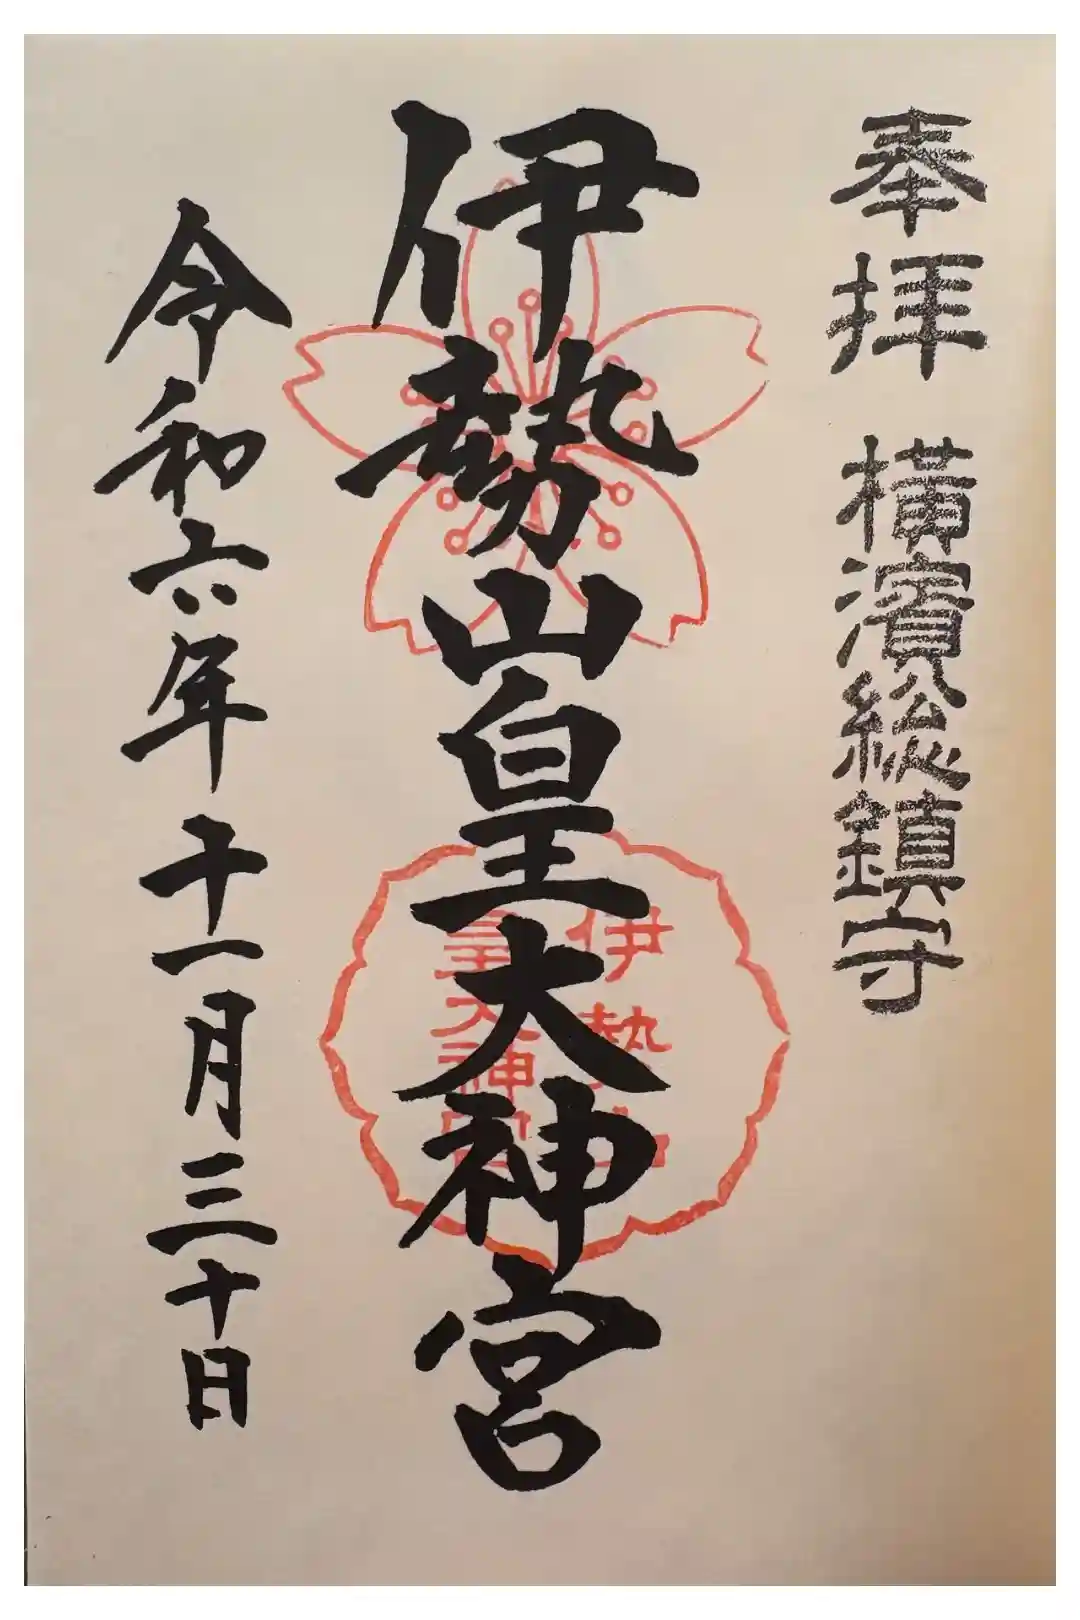 奉拝 横濱総鎮守
伊勢山皇大神宮
伊勢山
皇大神宮
令和六年十一月三十日